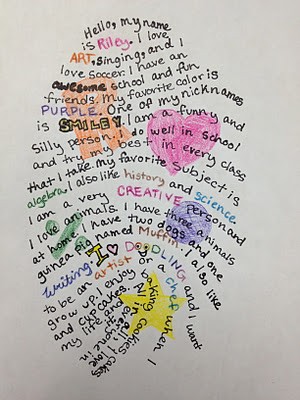 Hello, my name
is Riley. I love
ART, singing, and I
love soccer. I have an
awesome school and fun
friends. My favorite color is
PURPLE. One of my nicknames
is SMILEY. I am a funny and
silly person. I do well in school
and try my best in every class
that I take. my favorite subject is
algebra. I also like history and science.
I am a very CREATIVE person and
I love animals. I have three animals
at home. I have two dogs and one
guinea pig named Muffin. I also like
writing. I ♥ DOODLING and I want
to be an artist or a chef when I
grow up. I enjoy baking cookies, cakes
and cupcakes. All in all, I love
my life and everyone in